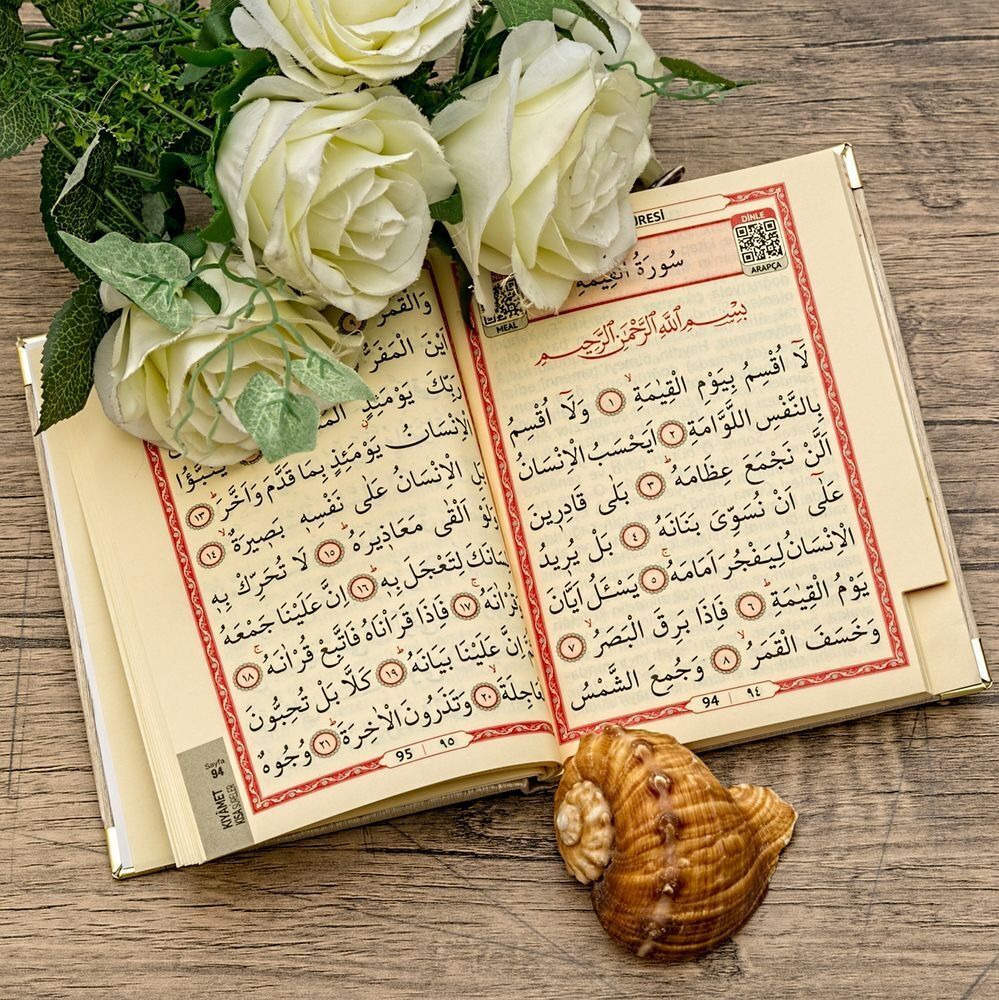 RESİ
DİNLE
ARAPÇA
MEAL
سُورَةُ الْقِيٰمَةِ
بِسْمِ اللّٰهِ الرَّحْمٰنِ الرَّحِيمِ
لَٓا اُقْسِمُ بِيَوْمِ الْقِيٰمَةِۙ ١ وَلَٓا اُقْسِمُ
بِالنَّفْسِ اللَّوَّامَةِ ٢ اَيَحْسَبُ الْاِنْسَانُ
اَلَّنْ نَجْمَعَ عِظَامَهُۜ ٣ بَلٰى قَادِرِينَ
عَلٰٓى اَنْ نُسَوِّيَ بَنَانَهُ ٤ بَلْ يُرِيدُ
الْاِنْسَانُ لِيَفْجُرَ اَمَامَهُۚ ٥ يَسْـَٔلُ اَيَّانَ
يَوْمُ الْقِيٰمَةِۜ ٦ فَاِذَا بَرِقَ الْبَصَرُۙ ٧
وَخَسَفَ الْقَمَرُۙ ٨ وَجُمِعَ الشَّمْسُ
94 | ٩٤
وَالْقَمَرُ
اَيْنَ الْمَفَرُّ
رَبِّكَ يَوْمَئِذٍ
يُنَبَّؤُا
الْاِنْسَانُ يَوْمَئِذٍ بِمَا قَدَّمَ وَاَخَّرَۜ ١٣
بَلِ الْاِنْسَانُ عَلٰى نَفْسِهِ بَصِيرَةٌۙ ١٤
وَلَوْ اَلْقٰى مَعَاذِيرَهُۜ ١٥ لَا تُحَرِّكْ بِهِ
لِسَانَكَ لِتَعْجَلَ بِهِۜ ١٦ اِنَّ عَلَيْنَا جَمْعَهُ
وَقُرْاٰنَهُۚ ١٧ فَاِذَا قَرَأْنَاهُ فَاتَّبِعْ قُرْاٰنَهُۚ ١٨
ثُمَّ اِنَّ عَلَيْنَا بَيَانَهُۜ ١٩ كَلَّا بَلْ تُحِبُّونَ
الْعَاجِلَةَۙ ٢٠ وَتَذَرُونَ الْاٰخِرَةَۜ ٢١ وُجُوهٌ
95 | ٩٥
Sayfa
94
KIYÂMET
KISA SURELER